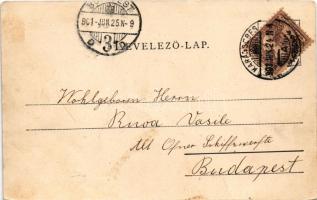 901 JUN. 25 N. 9
LEVELEZŐ-LAP.
Wohlgeboren Herrn
Ruva Vasile
Alt Ofner Schiffswerfte
Budapest